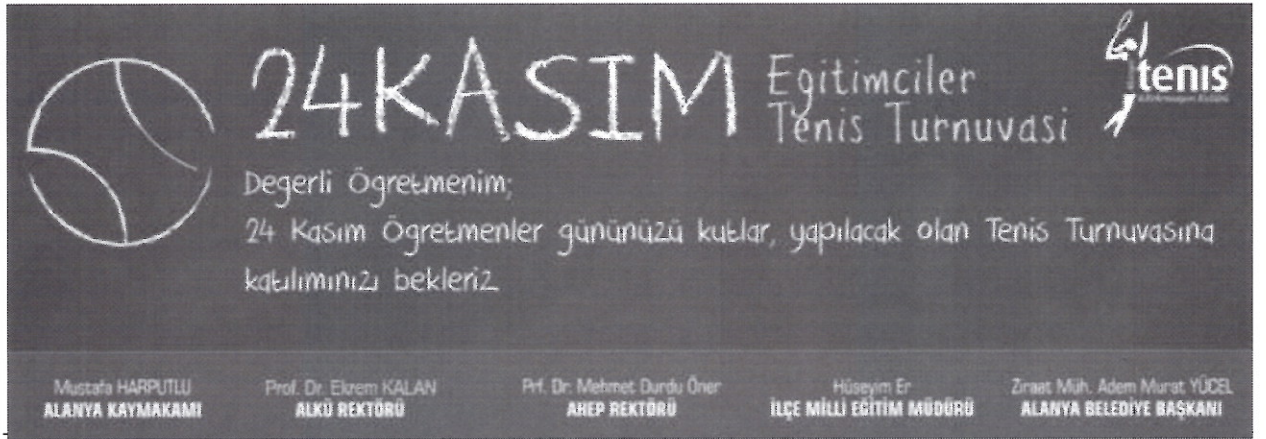 24 KASIM
Egitimciler
Tenis Turnuvasi
tenis
Degerli Ögretmenim;
24 Kasım Ögretmenler gününüzü kutlar, yapılacak olan Tenis Turnuvasına
katılımınızı bekleriz
Mustafa HARPUTLU
ALANYA KAYMAKAMI
Prof. Dr. Ekrem KALAN
ALKÜ REKTÖRÜ
Prf. Dr. Mehmet Durdu Öner
AHEP REKTÖRÜ
Hüseyim Er
İLÇE MİLLİ EĞİTİM MÜDÜRÜ
Ziraat Müh. Adem Murat YÜCEL
ALANYA BELEDİYE BAŞKANI